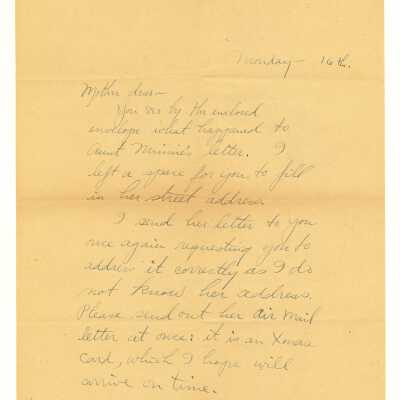 Monday - 16th.
Mother dear -
You see by the enclosed
envelope what happened to
Aunt Minnie's letter. I
left a space for you to fill
in her street address.
I send her letter to you
once again requesting you to
address it correctly as I do
not know her address.
Please send out her air mail
letter at once: it is an Xmas
card, which I hope will
arrive on time.